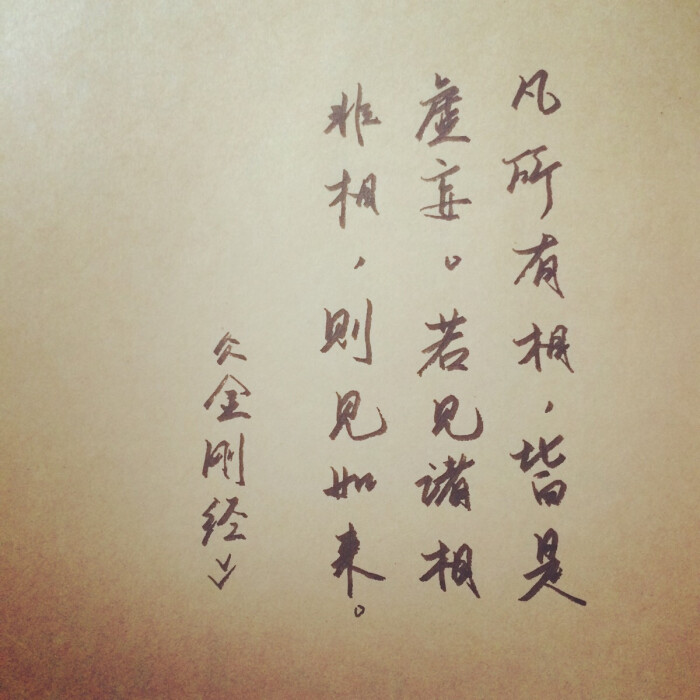 凡所有相，皆是
虚妄。若见诸相
非相，则见如来。
《金刚经》